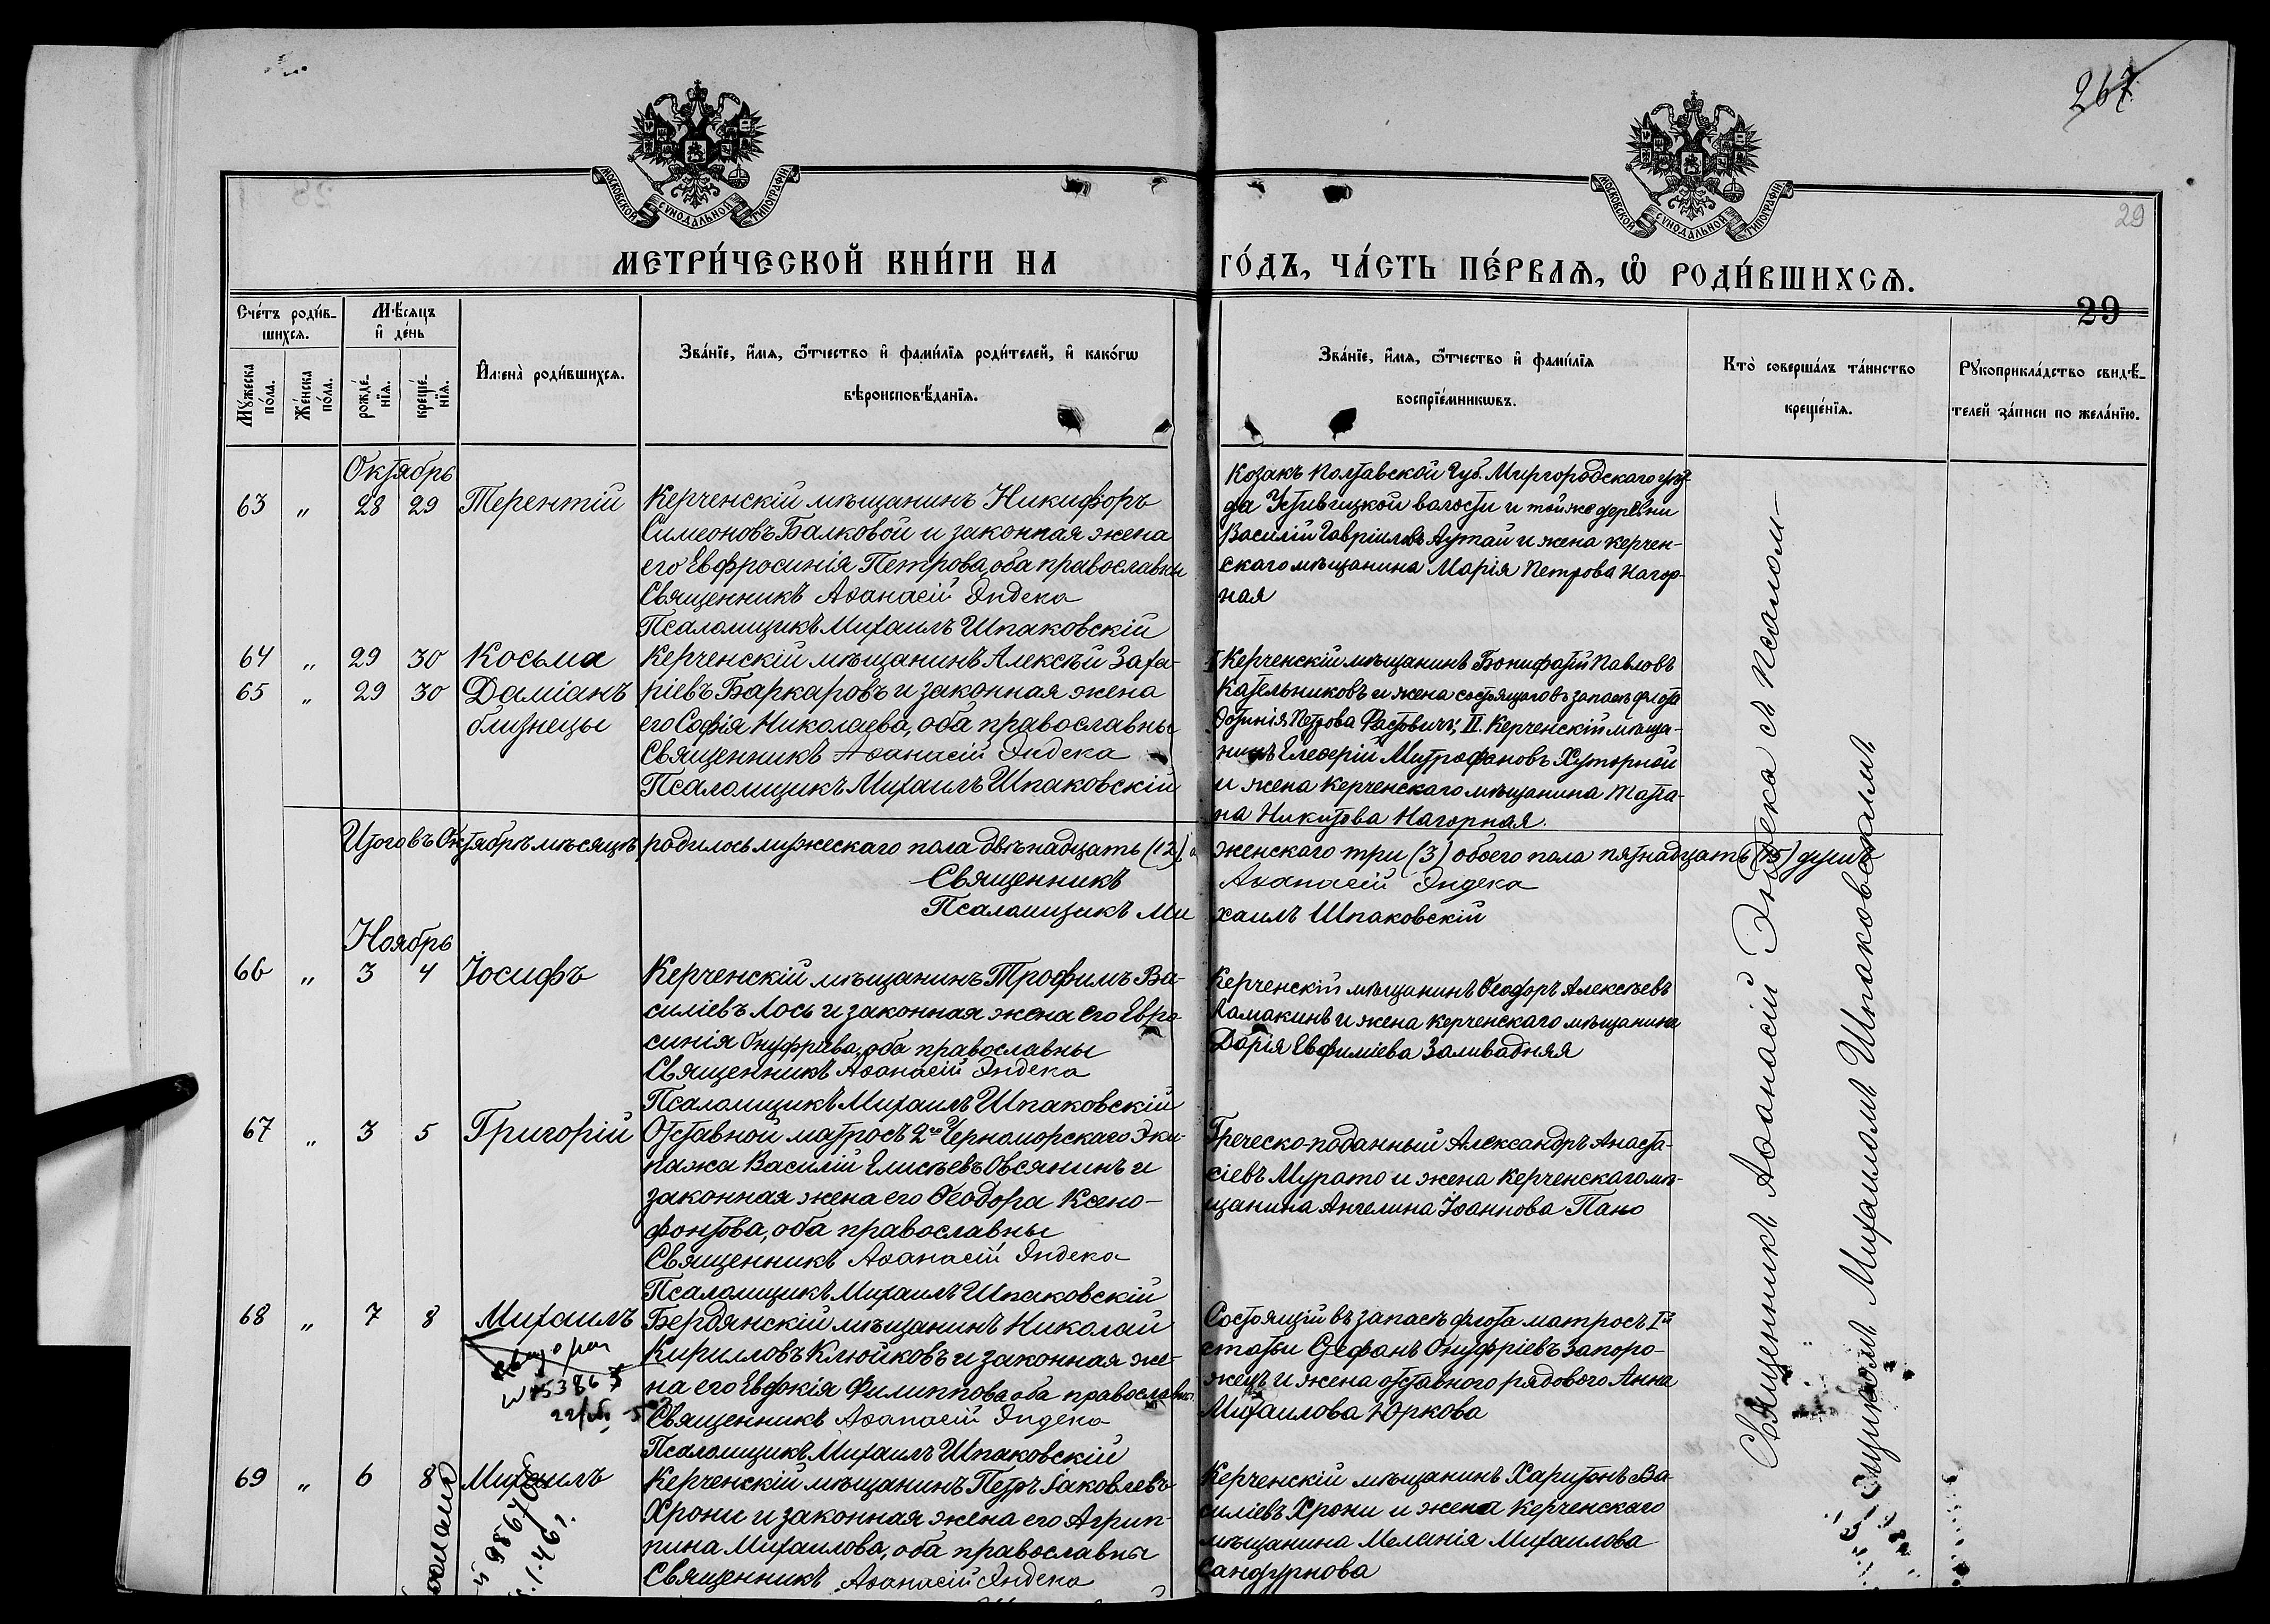 267
29
МОСКОВСКОЙ СУНОДАЛЬНОЙ ТИПОГРАФІИ
МОСКОВСКОЙ СУНОДАЛЬНОЙ ТИПОГРАФІИ
МЕТРИ́ЧЕСКОЙ КНИ́ГИ НА
ГО́ДЪ, ЧА́СТЬ ПЕ́РВАѦ, Ѡ҆ РОДИ́ВШИХСѦ.
29
Сче́тъ роди́в-
шихсѧ.
Мꙋ́жеска по́ла.
Же́нска по́ла.
Мѣ́сѧцъ
и҆ де́нь
рожде́-
нїѧ.
креще́-
нїѧ.
И҆мена̀ роди́вшихсѧ.
Зва́нїе, и҆́мѧ, ѻ҆́тчество и҆ фами́лїѧ роди́телей, и҆ како́гѡ
вѣроисповѣ́данїѧ.
Зва́нїе, и҆́мѧ, ѻ҆́тчество и҆ фами́лїѧ
воспрїе́мникѡвъ.
Кто̀ соверша́лъ та́инство
креще́нїѧ.
Рꙋкоприкла́дство свидѣ́-
телей за́писи по жела́нїю.
Октябрь
63 " 28 29 Терентій
Керченскій мѣщанинъ Никифоръ
Симеоновъ Балковой и законная жена
его Евфросинія Петрова, оба православны
Священникъ Аѳанасій Эндека
Псаломщикъ Михаилъ Шпаковскій
Козакъ Полтавской Губ. Миргородскаго уѣз-
да Устивицкой волости и той же деревни
Василій Гавріиловъ и жена керчен-
скаго мѣщанина Марія Петрова Нагор-
ная
64 " 29 30 Косьма
65 " 29 30 Даміанъ
близнецы
Керченскій мѣщанинъ Алексѣй Заха-
ріевъ Баркаровъ и законная жена
его Софія Николаева, оба православны
Священникъ Аѳанасій Эндека
Псаломщикъ Михаилъ Шпаковскій
I Керченскій мѣщанинъ Бонифатій Павловъ
Кательниковъ и жена состоящаго въ запасѣ флота
Петрова Фастовичъ; II. Керченскій мѣща-
нинъ Елеѳерій Митрофановъ Хуторной
и жена керченскаго мѣщанина Татіа-
на Никитова Нагорная.
Итого въ Октябрѣ мѣсяцѣ родилось мужескаго пола двѣнадцать (12), а женскаго три (3) обоего пола пятнадцать (15) душъ
Священникъ Аѳанасій Эндека
Псаломщикъ Михаилъ Шпаковскій
Ноябрь
66 " 3 4 Іосифъ
Керченскій мѣщанинъ Трофимъ Ва-
силіевъ Лось и законная жена его Евро-
синія Онуфріева, оба православны
Священникъ Аѳанасій Эндека
Псаломщикъ Михаилъ Шпаковскій
Керченскій мѣщанинъ Ѳеодоръ Алексѣевъ
Ламакинъ и жена керченскаго мѣщанина
Дарія Евфиміева Заливадняя
67 " 3 5 Григорій
Отставной матросъ 2го Черноморскаго Эки-
пажа Василій Елисѣевъ Овсянинъ и
законная жена его Ѳеодора Ксено-
фонтова, оба православны
Священникъ Аѳанасій Эндека
Псаломщикъ Михаилъ Шпаковскій
Греческо-поданный Александръ Анаста-
сіевъ Мурато и жена керченскаго мѣ-
щанина Ангелина Іоаннова Пано
68 " 7 8 Михаилъ
Бердянскій мѣщанинъ Николай
Кирилловъ Клюйковъ и законная же-
на его Евдокія Филиппова оба православны.
Священникъ Аѳанасій Эндека
Псаломщикъ Михаилъ Шпаковскій
Состоящій въ запасѣ флота матросъ Iй
статьи Стефанъ Онуфріевъ Запоро-
жецъ и жена отставного рядового Анна
Михаилова Юркова
69 " 6 8 Михаилъ
Керченскій мѣщанинъ Петръ Іаковлевъ
Хрони и законная жена его Агрип-
пина Михаилова, оба православны
Священникъ Аѳанасій Эндека
Керченскій мѣщанинъ Харитонъ Ва-
силіевъ Хрони и жена керченскаго
мѣщанина Меланія Михаилова
Сандурнова
Священникъ Аѳанасій Эндека съ Псалом-
щикомъ Михаиломъ Шпаковскимъ